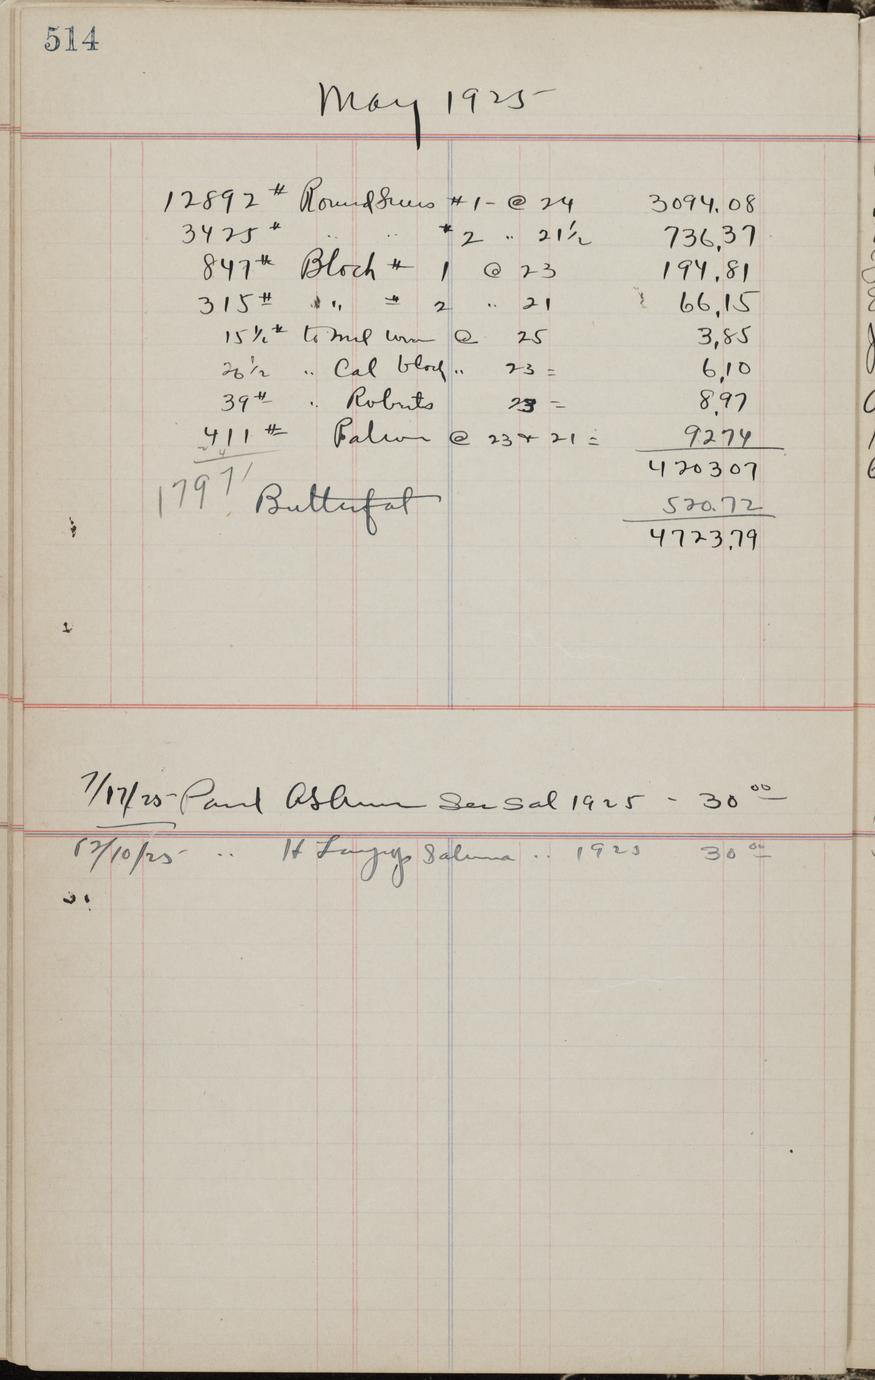 514
May 1925
12892 # Round Swiss #1 - @ 24 3094.08
3425 # " " #2 " 21½ 736,37
847 # Block # 1 @ 23 194.81
315 # " " # 2 " 21 66,15
15½ # to @ 25 3,85
26½ " Cal block " 23 = 6,10
39 # " Roberts 23 = 8,97
411 # @ 23 + 21 = 9274
420307
17971 Butterfat 520.72
4723.79
7/17/25 Paid Sec Sal 1925 - 30 00
12/10/25 " H 1925 30 00